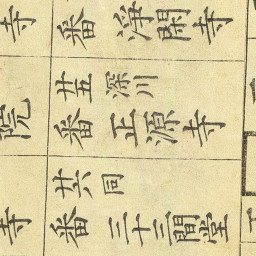 寺
番 淨閑寺
院
廿五番 深川 正源寺
寺
廿六番 同 三十三間堂